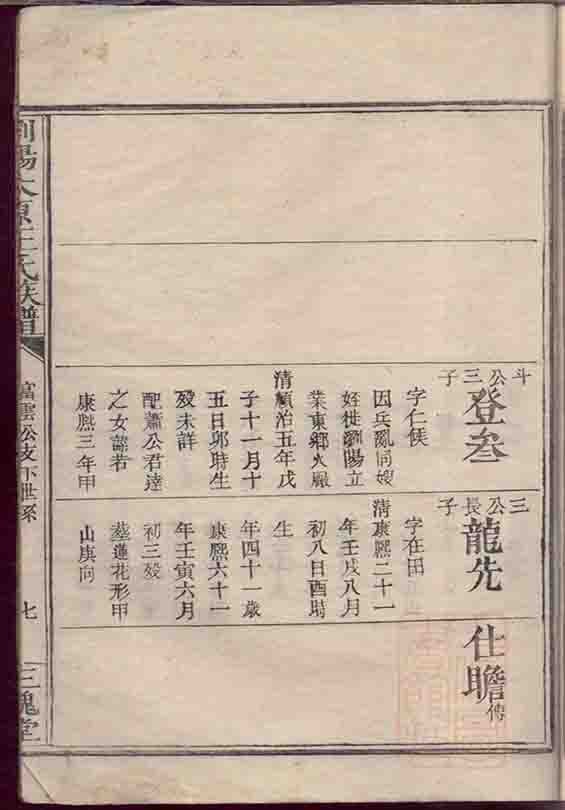 斗公三子
登叁
字仁侯
因兵亂同嫂
好徙瀏陽立
業東鄉火厰
清順治五年戊
子十一月十
五日卯時生
殁未詳
配蕭公君達
之女諒若
康熙三年甲
三公長子
龍先
字在田
清康熙二十一
年壬戌八月
初八日酉時
生
年四十一歲
康熙六十一
年壬寅六月
初三殁
葬蓮花形甲
山庚向
仕瞻
傳
瀏陽太原王氏族譜
富雲公支下世系
七
三槐堂